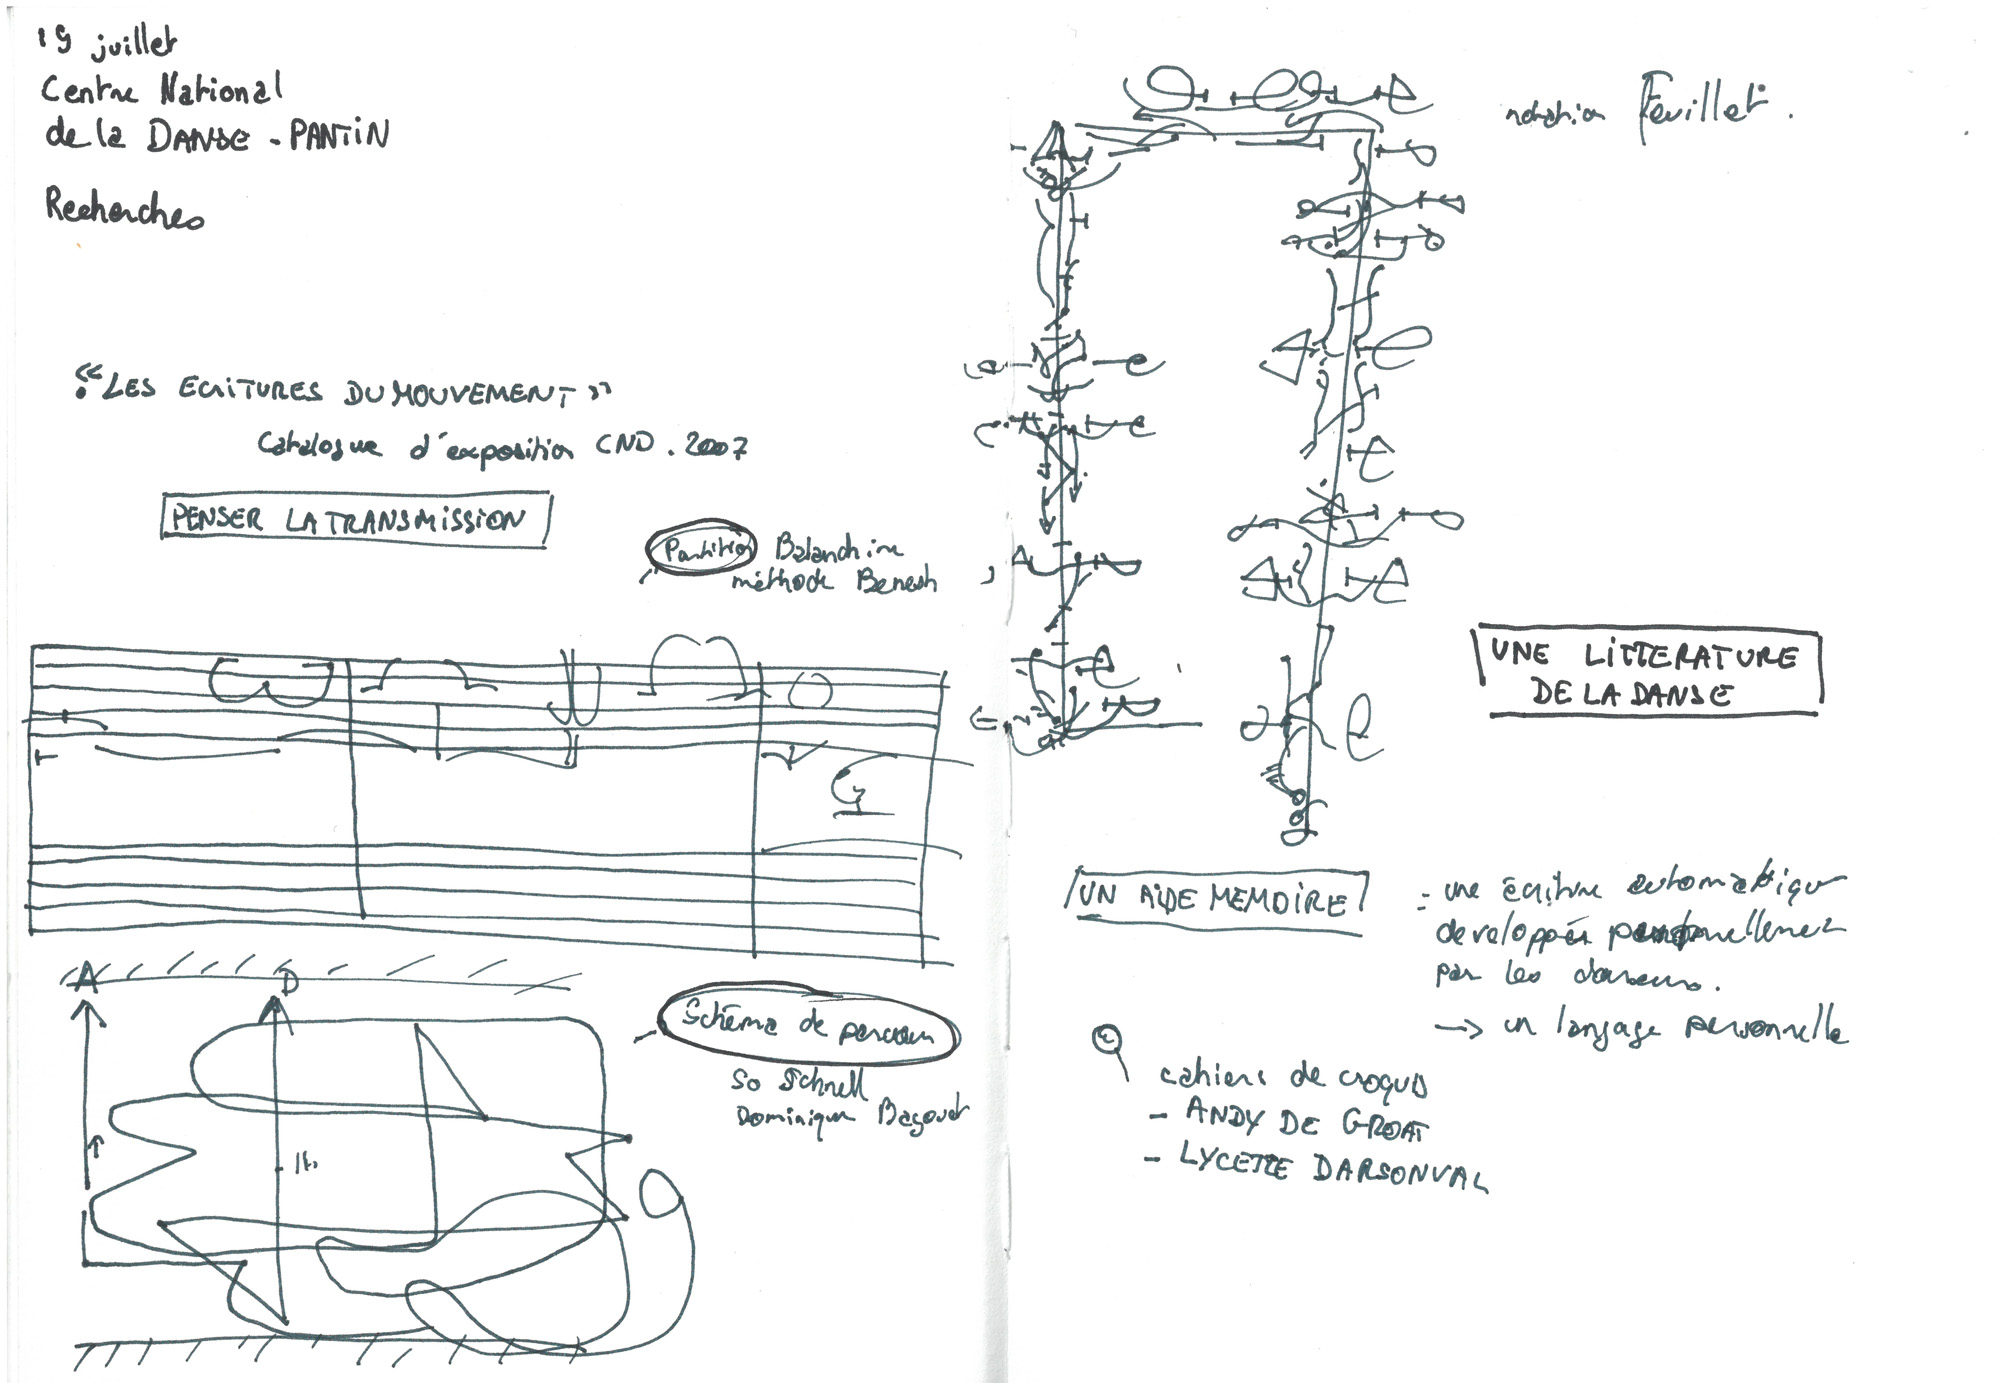 19 juillet
Centre National
de la DANSE - PANTIN
Recherches
"LES ECRITURES DU MOUVEMENT"
Catalogue d'exposition CND. 2007
PENSER LA TRANSMISSION
Partition Balanchine
méthode Benesh
A D
Schéma de parcours
So Schnell
Dominique Bagouet
notation Feuillet.
UNE LITTERATURE
DE LA DANSE
UN AIDE MEMOIRE
= une écriture automatique
developpée personnellement
par les danseurs.
→ un langage personnelle
cahiers de croquis
- ANDY DE GROAT
- LYCETTE DARSONVAL